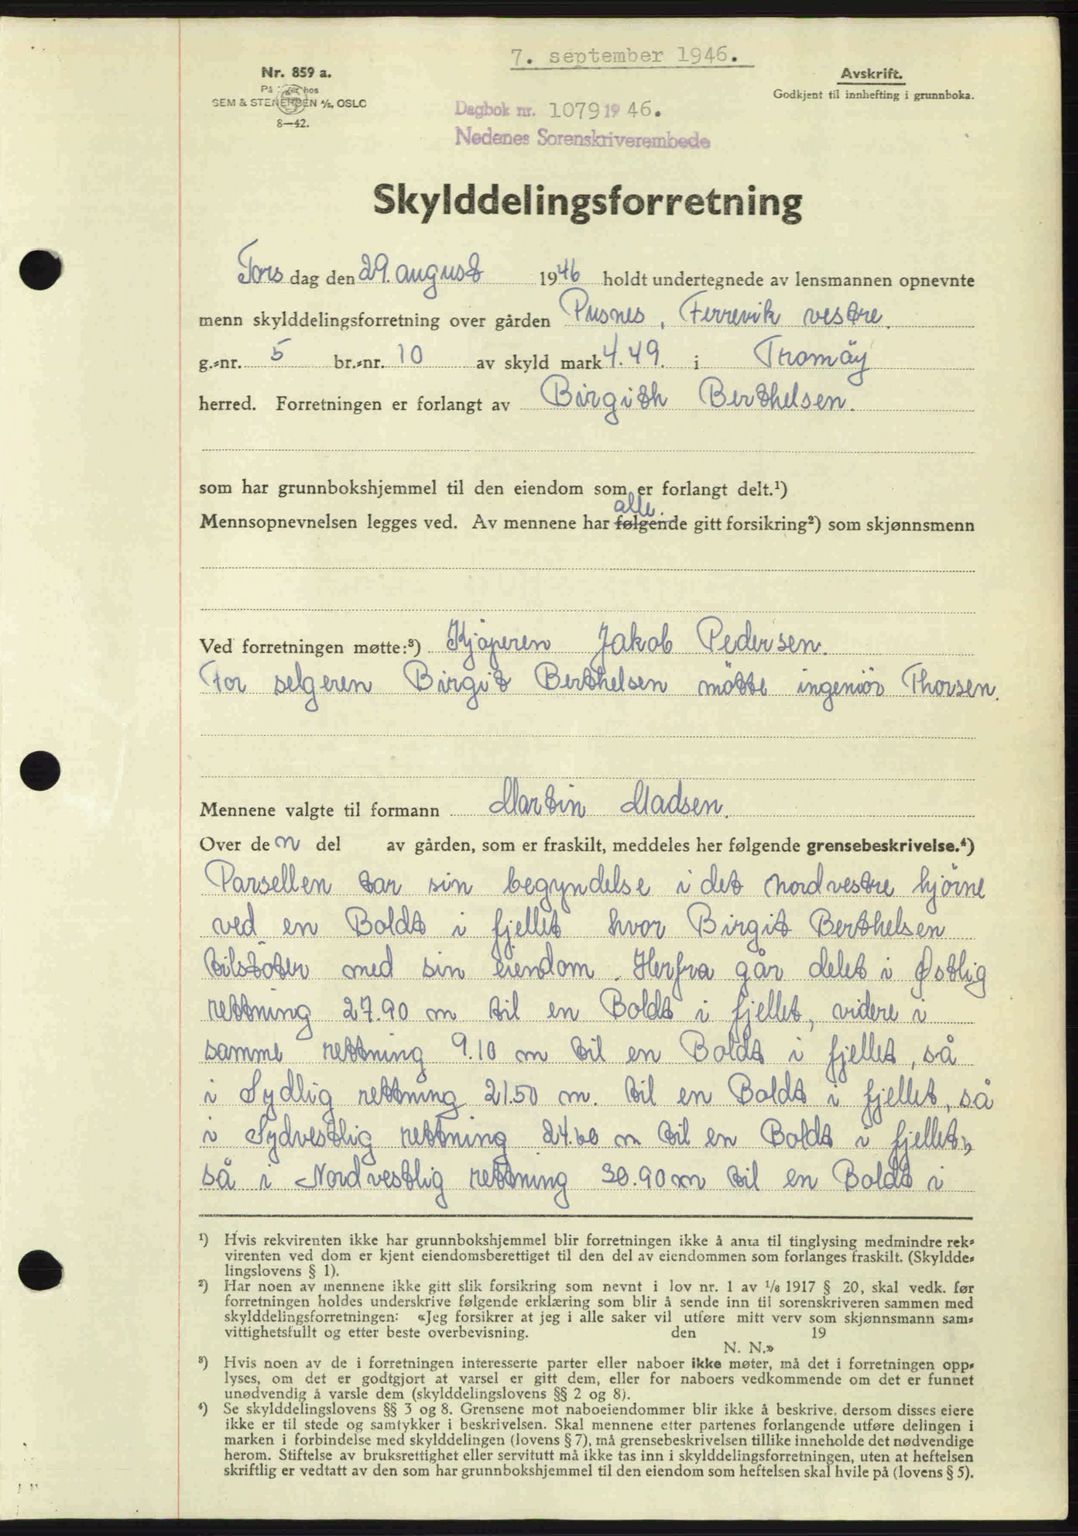 7. september 1946.
Nr. 859 a.
Avskrift.
På hos
Godkjent til innhefting i grunnboka.
SEM & STENERSEN A/S, OSLO
8—42.
Dagbok nr. 1079 1946.
Nedenes Sorenskriverembede
Skylddelingsforretning
Torsdag den 29. august 1946 holdt undertegnede av lensmannen opnevnte
menn skylddelingsforretning over gården Pusnes, Ferrevik vestre.
g.-nr. 5 br.-nr. 10 av skyld mark 4.49. i Tromøy
herred. Forretningen er forlangt av Birgith Berthelsen.
som har grunnbokshjemmel til den eiendom som er forlangt delt.¹)
alle.
Mennsopnevnelsen legges ved. Av mennene har følgende gitt forsikring²) som skjønnsmenn
Ved forretningen møtte:³) Kjøperen Jakob Pedersen.
For selgeren Birgit Berthelsen møtte ingeniør Thorsen.
Mennene valgte til formann Martin Madsen.
Over den del av gården, som er fraskilt, meddeles her følgende grensebeskrivelse.⁴)
Parsellen tar sin begyndelse i det nordvestre hjørne
ved en Boldt i fjellet hvor Birgit Berthelsen
tilstøter med sin eiendom. Herfra går delet i Østlig
rettning 27.90 m til en Boldt i fjellet, videre i
samme rettning 9.10 m til en Boldt i fjellet, så
i Sydlig rettning 21.50 m. til en Boldt i fjellet, så
i Sydvestlig rettning 24.60 m til en Boldt i fjellet,
så i Nordvestlig rettning 30.90 m til en Boldt i
¹) Hvis rekvirenten ikke har grunnbokshjemmel blir forretningen ikke å anta til tinglysing medmindre rek-
virenten ved dom er kjent eiendomsberettiget til den del av eiendommen som forlanges fraskilt. (Skyldde-
lingslovens § 1).
²) Har noen av mennene ikke gitt slik forsikring som nevnt i lov nr. 1 av 1/6 1917 § 20, skal vedk. før
forretningen holdes underskrive følgende erklæring som blir å sende inn til sorenskriveren sammen med
skylddelingsforretningen: «Jeg forsikrer at jeg i alle saker vil utføre mitt verv som skjønnsmann sam-
vittighetsfullt og etter beste overbevisning. den 19
N. N.»
³) Hvis noen av de i forretningen interesserte parter eller naboer ikke møter, må det i forretningen opp-
lyses, om det er godtgjort at varsel er gitt dem, eller for naboers vedkommende om det er funnet
unødvendig å varsle dem (skylddelingslovens §§ 2 og 8).
⁴) Se skylddelingslovens §§ 3 og 8. Grensene mot naboeiendommer blir ikke å beskrive, dersom disses eiere
ikke er til stede og samtykker i beskrivelsen. Skal mennene etter partenes forlangende utføre delingen i
marken i forbindelse med skylddelingen (lovens § 7), må grensebeskrivelsen tillike inneholde det nødvendige
herom. Stiftelse av bruksrettighet eller servitutt må ikke tas inn i skylddelingsforretningen, uten at heftelsen
skriftlig er vedtatt av den som har grunnbokshjemmel til den eiendom som heftelsen skal hvile på (lovens § 5).